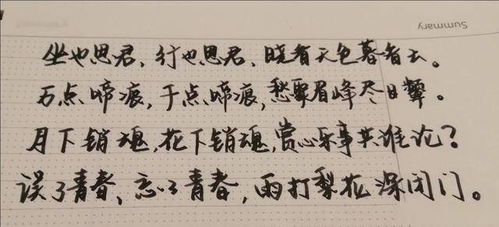 Summary
坐也思君,行也思君、晓看天色暮看云。
万点啼痕,千点啼痕,愁聚眉峰尽日颦。
月下销魂,花下销魂,赏心乐事共谁论?
误了青春、忘了青春,雨打梨花深闭门。